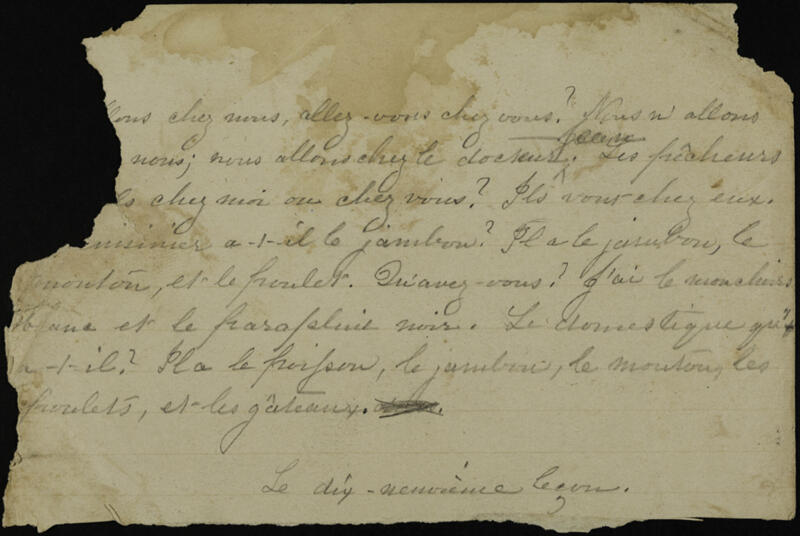 llons chez nous, allez-vous chez vous? Nous n'allons
nous; nous allons chez le docteur. Les pêcheurs
ls chez moi ou chez vous? Ils vont chez eux.
uisinier a-t-il le jambon? Il a le jambon, le
mouton, et le poulet. Qu'avez-vous? J'ai le mouchoirs
blanc et le parapluie noir. Le domestique qu'
a-t-il? Il a le poisson, le jambon, le mouton, les
poulets, et les gâteaux.
Le dix-neuvième leçon.